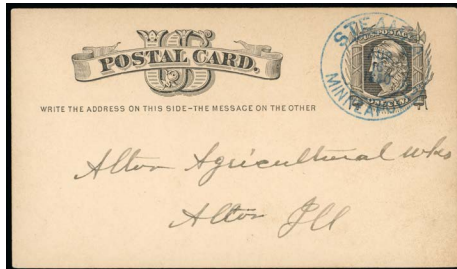 U S
POSTAL CARD.
WRITE THE ADDRESS ON THIS SIDE-THE MESSAGE ON THE OTHER
Alton Agricultural Wks
Alton Ill